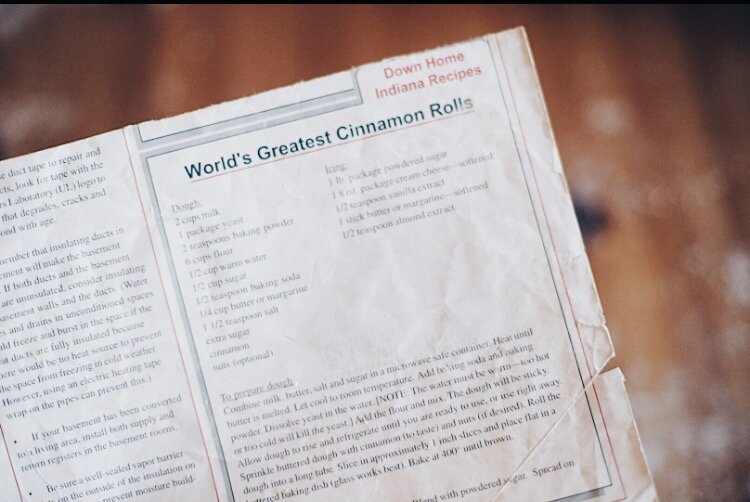 duct tape to repair and
look for tape with the
Laboratory (UL) logo to
that degrades, cracks and
with age.
that insulating ducts in
will make the basement
If both ducts and the basement
are uninsulated, consider insulating
basement walls and the ducts. (Water
and drains in unconditioned spaces
freeze and burst in the space if the
ducts are fully insulated because
there would be no heat source to prevent
the space from freezing in cold weather.
However, using an electric heating tape
wrap on the pipes can prevent this.)
• If your basement has been converted
to a living area, install both supply and
return registers in the basement rooms.
• Be sure a well-sealed vapor barrier
on the outside of the insulation on
prevent moisture build-
Down Home
Indiana Recipes
World's Greatest Cinnamon Rolls
Dough:
2 cups milk
1 package yeast
2 teaspoons baking powder
6 cups flour
1/2 cup warm water
1/2 cup sugar
1/2 teaspoon baking soda
1/4 cup butter or margarine
1 1/2 teaspoon salt
extra sugar
cinnamon
nuts (optional)
Icing:
1 lb. package powdered sugar
1 8 oz. package cream cheese—softened
1/2 teaspoon vanilla extract
1 stick butter or margarine—softened
1/2 teaspoon almond extract
To prepare dough
Combine milk, butter, salt and sugar in a microwave safe container. Heat until
butter is melted. Let cool to room temperature. Add baking soda and baking
powder. Dissolve yeast in the water. [NOTE: The water must be warm—too hot
or too cold will kill the yeast.] Add the flour and mix. The dough will be sticky.
Allow dough to rise and refrigerate until you are ready to use, or use right away.
Sprinkle buttered dough with cinnamon (to taste) and nuts (if desired). Roll the
dough into a long tube. Slice in approximately 1 inch slices and place flat in a
buttered baking dish (glass works best). Bake at 400° until brown.
Blend with powdered sugar. Spread on